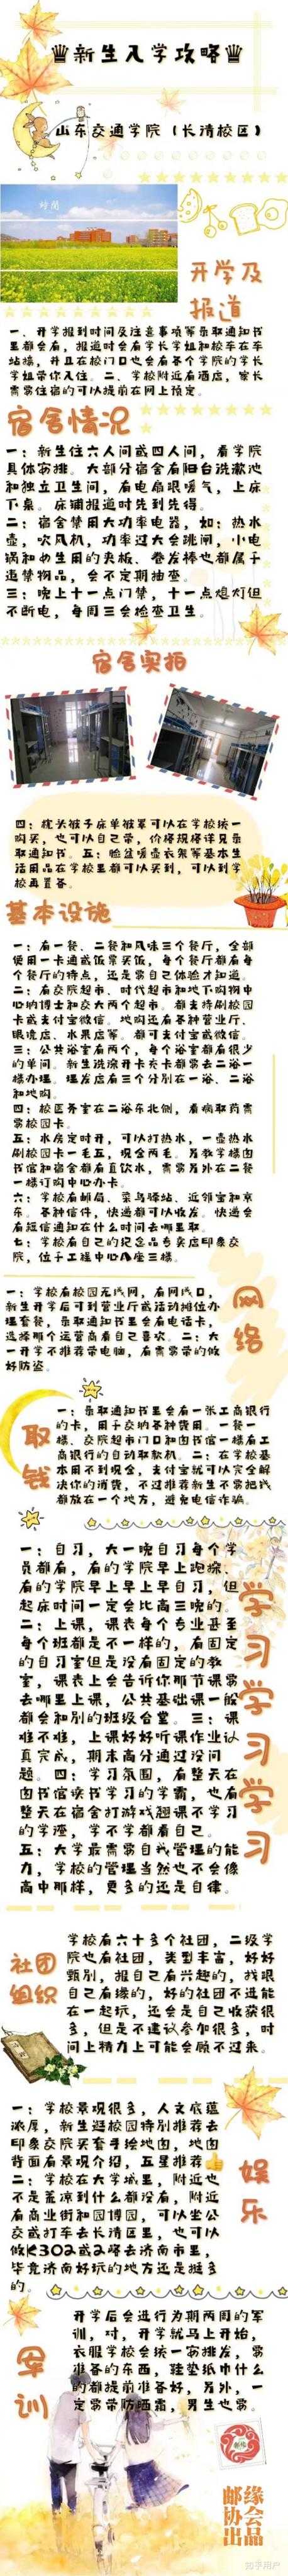 ♛新生入学攻略♛
山东交通学院（长清校区）
开学及
报道
一、开学报到时间及注意事项等录取通知书
里都会有，报道时会有学长学姐和校车在车
站接，并且在校门口也会有各个学院的学长
学姐带你入住。二、学校附近有酒店，家长
需要住宿的可以提前在网上预定。
宿舍情况
一：新生住六人间或四人间，看学院
具体安排。大部分宿舍有阳台洗漱池
和独立卫生间，有电扇跟暖气，上床
下桌。床铺报道时先到先得。
二：宿舍禁用大功率电器，如：热水
壶，吹风机，功率过大会跳闸，小电
锅和女生用的夹板、卷发棒也都属于
违禁物品，会不定期抽查。
三：晚上十一点门禁，十一点熄灯但
不断电，每周三会检查卫生。
宿舍实拍
四：枕头被子床单被罩可以在学校统一
购买，也可以自己带，价格规格详见录
取通知书。五：脸盆暖壶衣架等基本生
活用品在学校里都可以买到，可以到学
校再置备。
基本设施
一：有一餐、二餐和风味三个餐厅，全部
使用一卡通或饭票买饭，每个餐厅都有每
个餐厅的特点，还是要自己体验才知道。
二：有交院超市、时代超市和地下购物中
心纳博士和交大两个超市。都支持刷校园
卡或支付宝微信。地购还有各种营业厅、
眼镜店、水果店等。都可支付宝或微信。
三：公共浴室有两个，每个浴室都有很少
的单间。新生洗澡开卡充卡都要去二浴一
楼办理。理发店有三个分别在一浴、二浴
和地购。
四：校医务室在二浴东北侧，看病取药需
要校园卡。
五：水房定时开，可以打热水，一壶热水
刷校园卡一毛五，现金两毛。另教学楼图
书馆和宿舍都有直饮水，需要另外在二餐
一楼订购中心办卡。
六：学校有邮局、菜鸟驿站、近邻宝和京
东。各种信件，快递都可以收发。快递会
有短信通知在什么时间去哪里取。
七：学校有自己的纪念品专卖店印象交
院，位于工程中心八座三楼。
网络
一：学校有校园无线网，有网线口，
新生开学后可到营业厅或活动摊位办
理套餐，录取通知书里会有电话卡，
选择哪个运营商看自己喜欢。二：大
一开学不推荐带电脑，有需要带的做
好防盗。
取钱
一：录取通知书里会有一张工商银行
的卡，用于交纳各种费用。一餐一
楼、交院超市门口和图书馆一楼有工
商银行的自动取款机。二：在学校基
本用不到现金，支付宝就可以完全解
决你的消费，不过推荐新生不要把钱
都放在一个地方，避免电信诈骗。
学习学习学习
一：自习，大一晚自习每个学
员都有，有的学院早上跑操，
有的学院早上早上早自习，但
起床时间一定会比高三晚的
二：上课，课表每个专业甚至
每个班都是不一样的，有固定
的自习室但是没有固定的教
室，课表上会告诉你那节课要
去哪里上课，公共基础课一般
都会和别的班级合堂。三：课
难不难，上课好好听课作业认
真完成，期末高分通过没问
题。四：学习氛围，有整天在
图书馆读书学习的学霸，也有
整天在宿舍打游戏翘课不学习
的学渣，学不学都看自己。
五：大学最需要自我管理的能
力，学校的管理当然也不会像
高中那样，更多的还是自律。
社团
组织
学校有六十多个社团，二级学
院也有社团，类型丰富，好好
甄别，报自己有兴趣的，找跟
自己有缘的，好的社团不进能
在一起玩，还会是自己收获很
多，但是不建议参加很多，时
间上精力上可能会顾不过来。
娱乐
一：学校景观很多，人文底蕴
浓厚，新生逛校园特别推荐去
印象交院买套手绘地图，地图
背面有景观介绍，五星推荐👍
二：学校在大学城里，附近也
不是荒凉到什么都没有，附近
有商业街和园博园，可以坐公
交或打车去长清区里，也可以
做K302或2路去济南市里，
毕竟济南好玩的地方还是挺多
的。
军训
开学后会进行为期两周的军
训，对，开学就马上开始，
衣服学校会统一安排发，要
准备的东西，鞋垫纸巾什么
的都提前准备好，另外，一
定要带防晒霜，男生也要。
邮缘
协会
出品
知乎用户